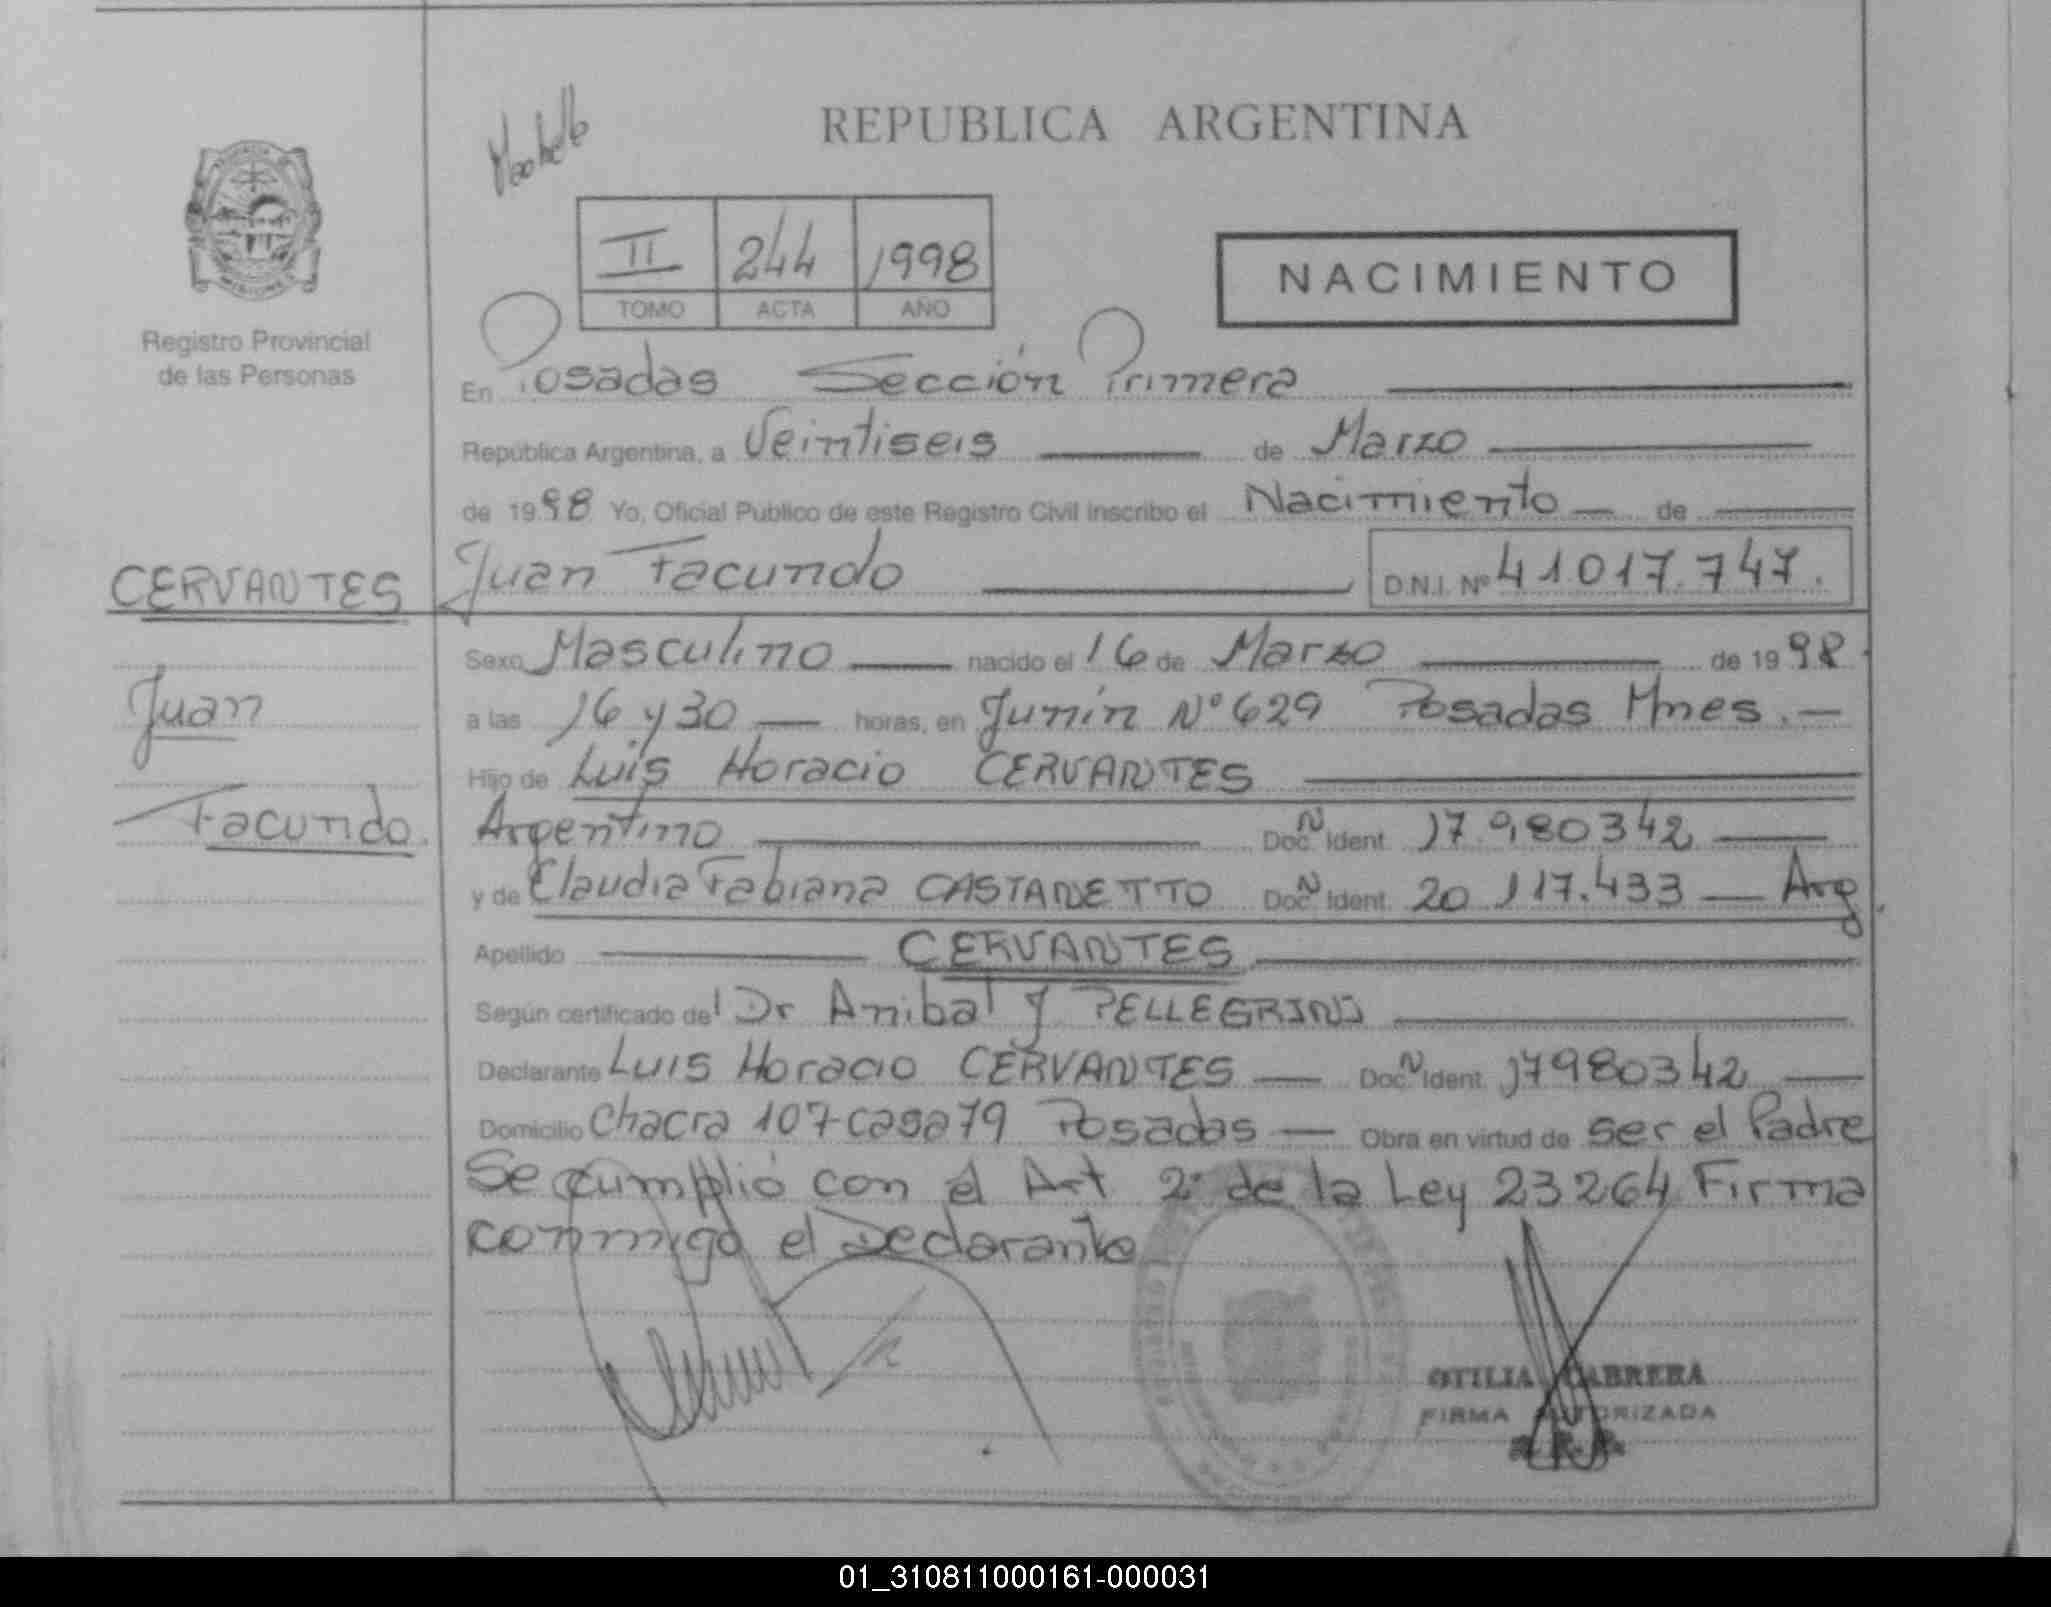 REPUBLICA ARGENTINA
II 244 1998
TOMO ACTA AÑO
NACIMIENTO
Registro Provincial
de las Personas
En Posadas Sección Primera
República Argentina, a Veintiseis de Marzo
de 1998 Yo, Oficial Publico de este Registro Civil inscribo el Nacimiento de
CERVANTES
Juan
Facundo.
Juan Facundo D.N.I. Nº 41.017.747.
Sexo Masculino nacido el 16 de Marzo de 1998
a las 16 y 30 horas, en Junín Nº 629 Posadas Mnes.
Hijo de Luis Horacio CERVANTES
Argentino Doc. N Ident. 17.980342
y de Claudia Fabiana CASTANETTO Doc. N Ident. 20.117.433 Arg.
Apellido CERVANTES
Según certificado del Dr Anibal J PELLEGRINI
Declarante Luis Horacio CERVANTES Doc. N Ident. 17980342
Domicilio Chacra 107-casa 79 Posadas Obra en virtud de ser el Padre
Se cumplió con el Art 2º de la Ley 23264 Firma
conmigo el Declarante
OTILIA CABRERA
FIRMA AUTORIZADA
01_310811000161-000031